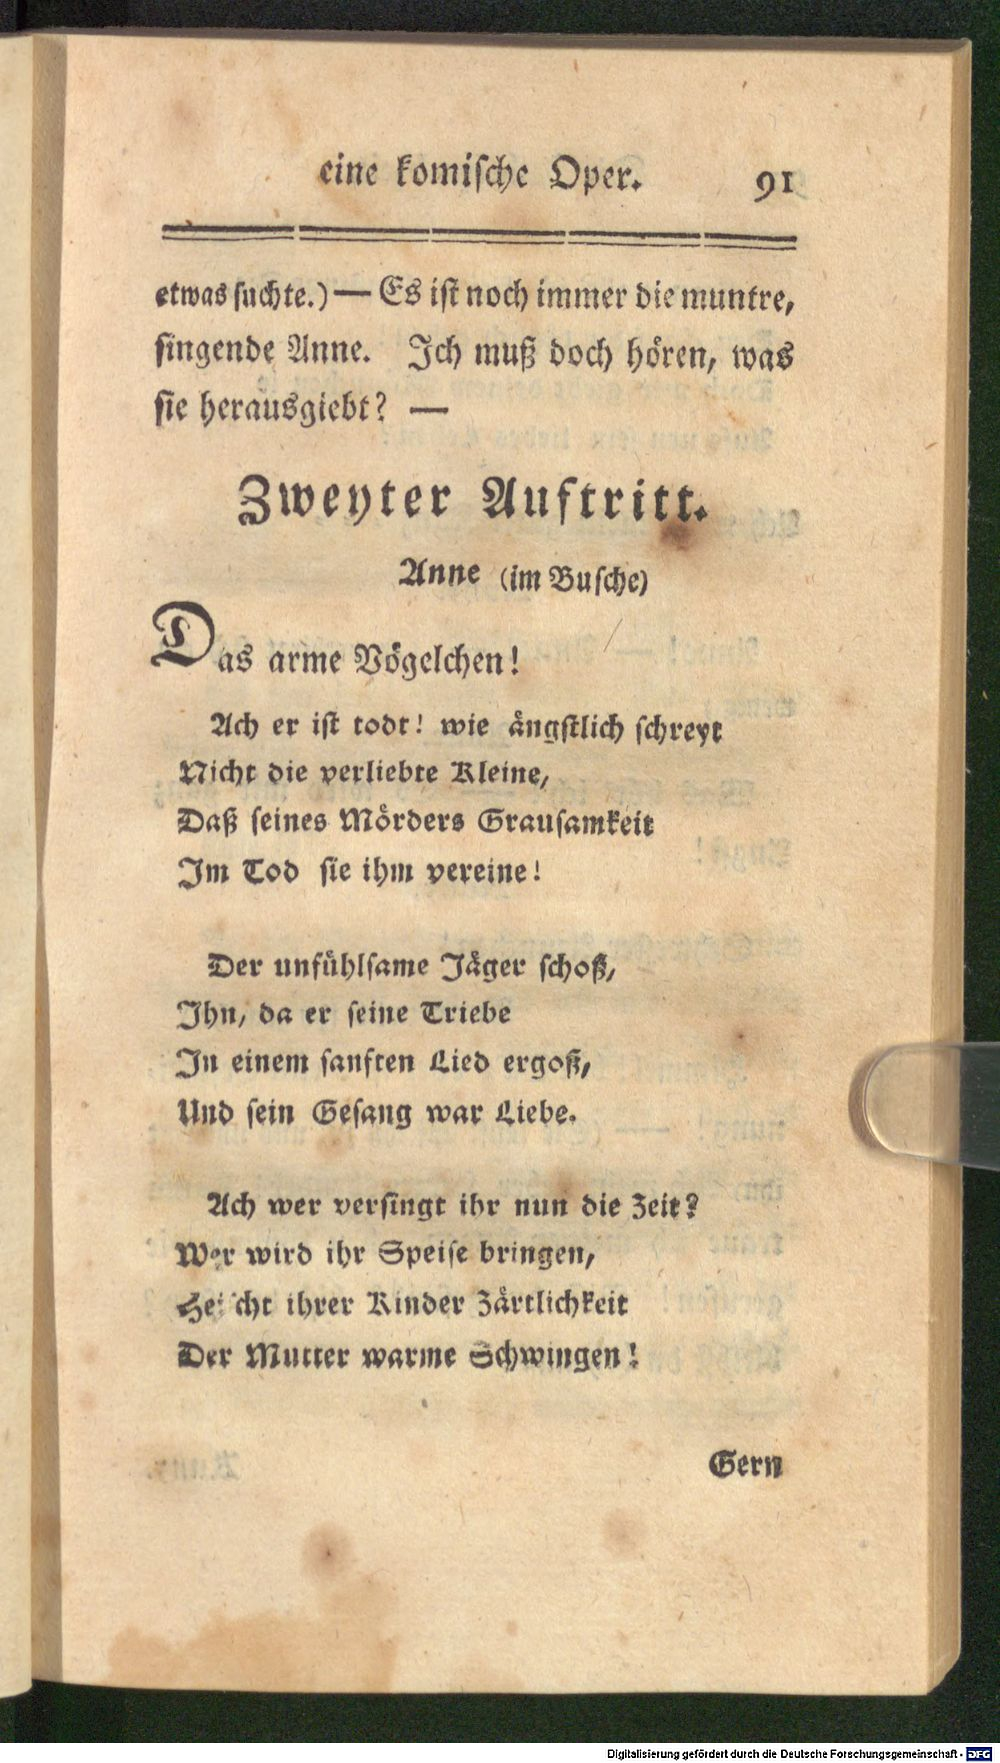 eine komische Oper. 91
etwas suchte.) — Es ist noch immer die muntre,
singende Anne. Ich muß doch hören, was
sie herausgiebt? —
Zweyter Auftritt.
Anne (im Busche)
Das arme Vögelchen!
Ach er ist todt! wie ängstlich schreyt
Nicht die verliebte Kleine,
Daß seines Mörders Grausamkeit
Im Tod sie ihm vereine!
Der unfühlsame Jäger schoß,
Ihn, da er seine Triebe
In einem sanften Lied ergoß,
Und sein Gesang war Liebe.
Ach wer versingt ihr nun die Zeit?
Wer wird ihr Speise bringen,
Heischt ihrer Kinder Zärtlichkeit
Der Mutter warme Schwingen!
Gern
Digitalisierung gefördert durch die Deutsche Forschungsgemeinschaft - DFG